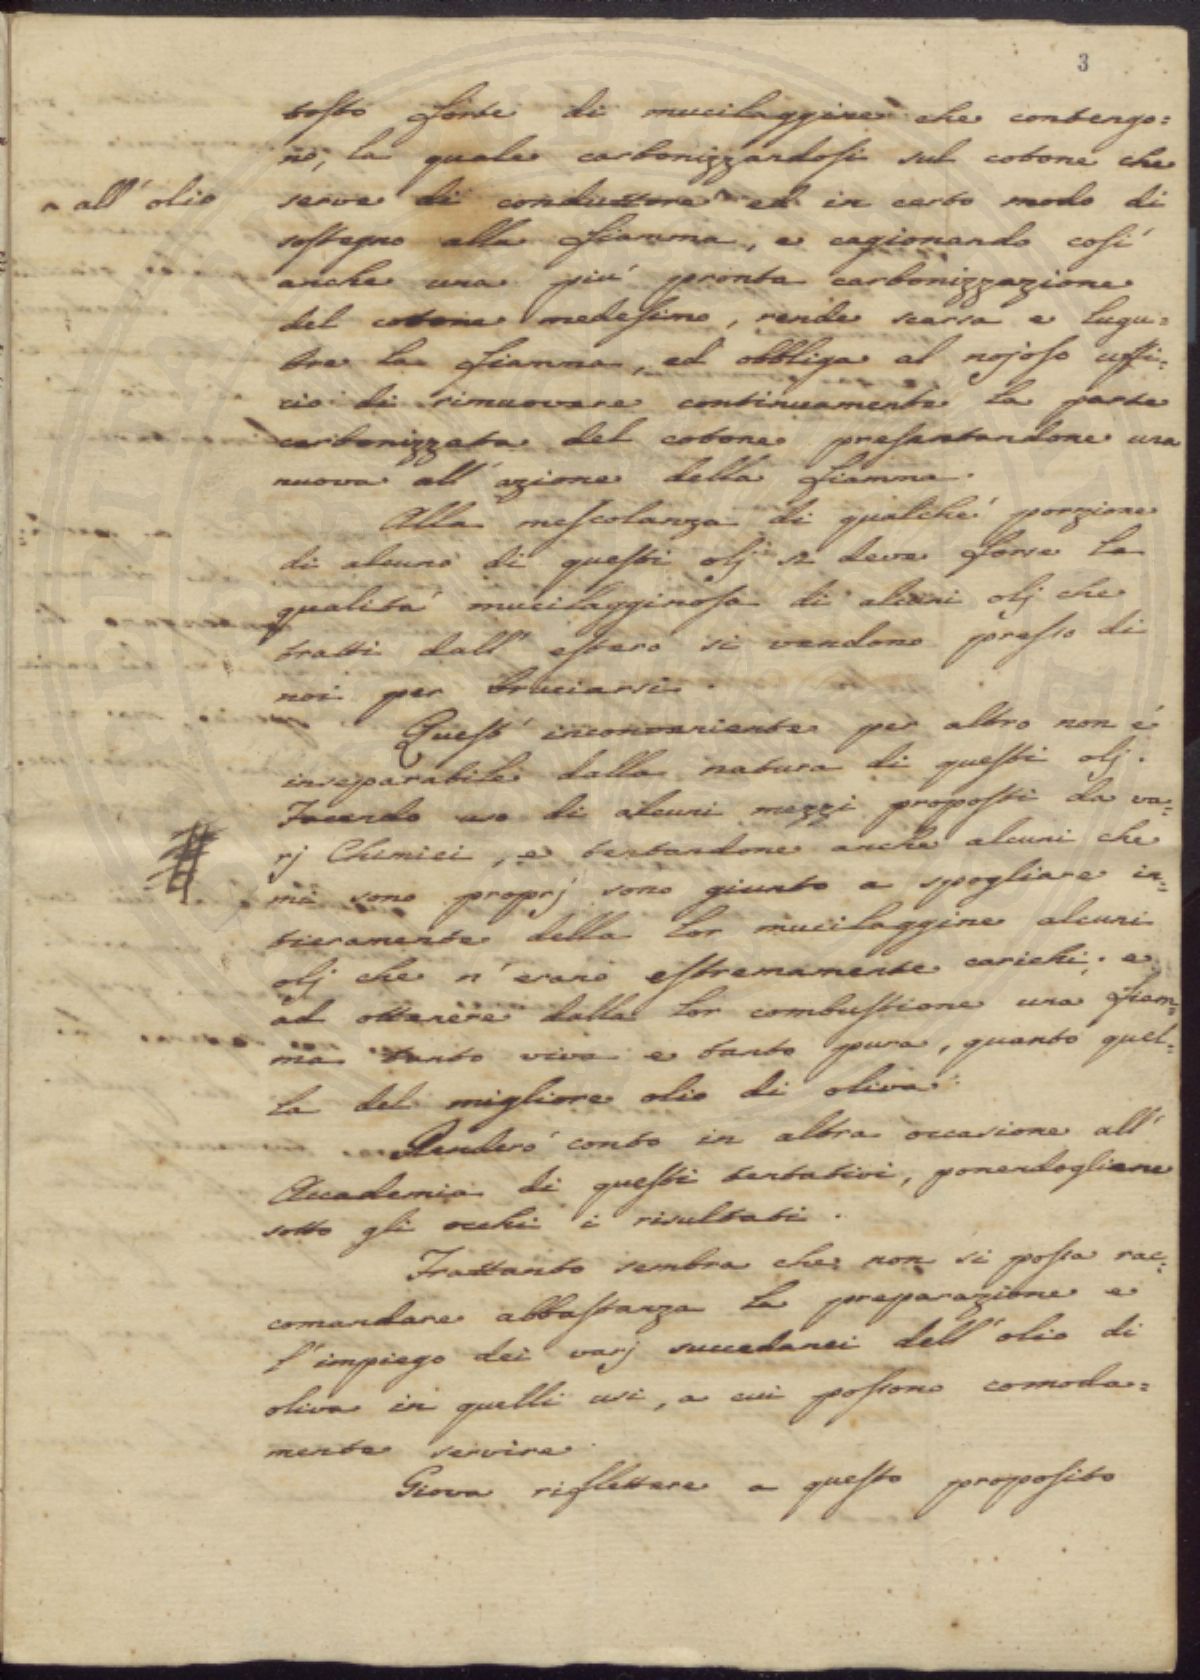 3
tosto forte di mucilaggine che contengo=
no, la quale carbonizzandosi sul cotone che
all' olio
serve di conduttore ed in certo modo di
sostegno alla fiamma, e cagionando così
anche una più pronta carbonizzazione
del cotone medesimo, rende scarsa e lugu=
bre la fiamma, ed obbliga al nojoso uffi=
cio di rimuovere continuamente la parte
carbonizzata del cotone presentandone una
nuova all' azione della fiamma.
Alla mescolanza di qualche porzione
di alcuno di questi olj si deve forse la
qualità mucilagginosa di alcuni olj che
tratti dall' estero si vendono presso di
noi per bruciarsi.
Quest' inconveniente per altro non è
inseparabile dalla natura di questi olj.
Facendo uso di alcuni mezzi proposti da va=
rj Chimici, e tentandone anche alcuni che
#
mi sono proprj sono giunto a spogliare in=
tieramente della lor mucilaggine alcuni
olj che n' erano estremamente carichi; e
ad ottenere dalla lor combustione una fiam=
ma tanto viva e tanto pura, quanto quel=
la del migliore olio di oliva.
Renderò conto in altra occasione all'
Accademia di questi tentativi, ponendogliene
sotto gli occhi i risultati.
Frattanto sembra che non si possa rac=
comandare abbastanza la preparazione e
l' impiego dei varj succedanei dell' olio di
oliva in quelli usi, a cui possono comoda=
mente servire.
Giova riflettere a questo proposito